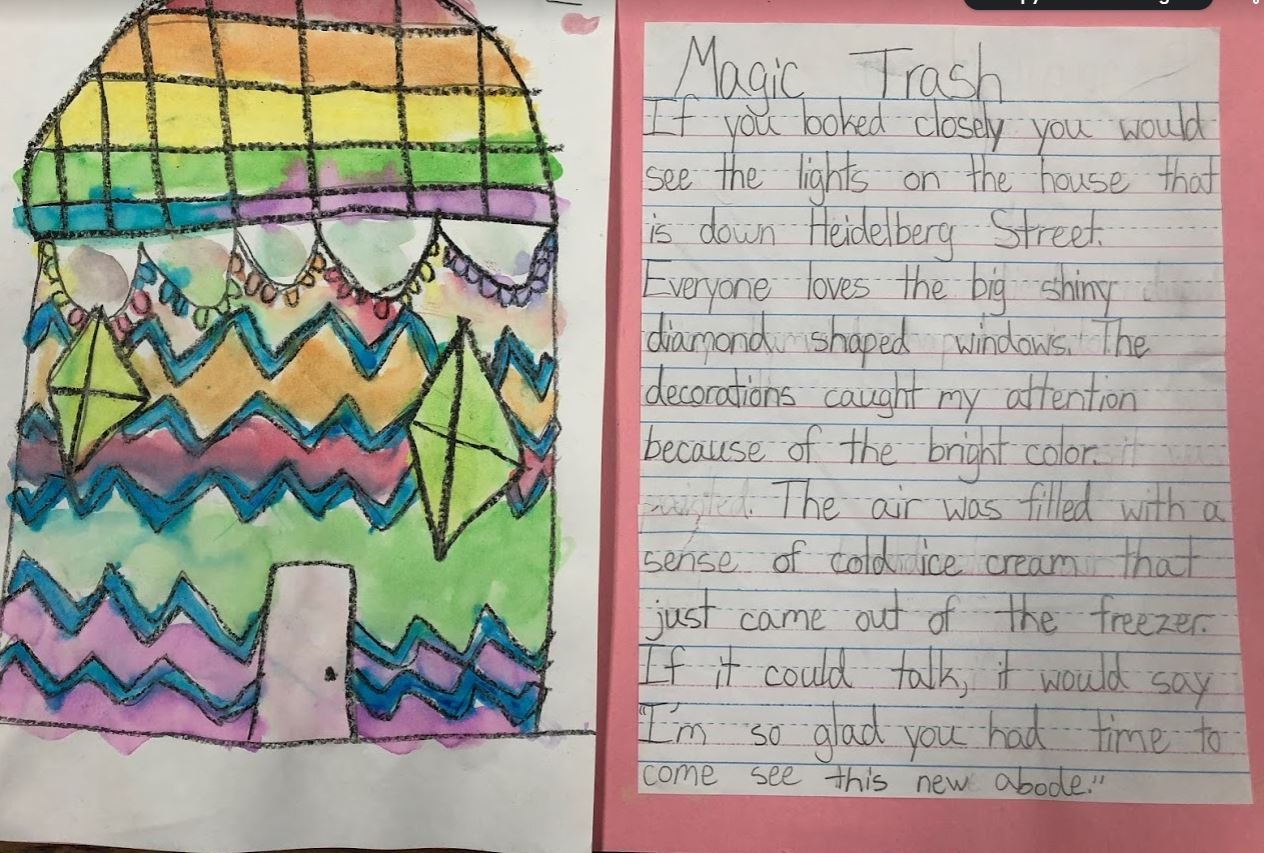 Magic Trash
If you looked closely you would
see the lights on the house that
is down Heidelberg Street.
Everyone loves the big shiny
diamond shaped windows. The
decorations caught my attention
because of the bright color.
The air was filled with a
sense of cold ice cream that
just came out of the freezer.
If it could talk, it would say
"I'm so glad you had time to
come see this new abode."